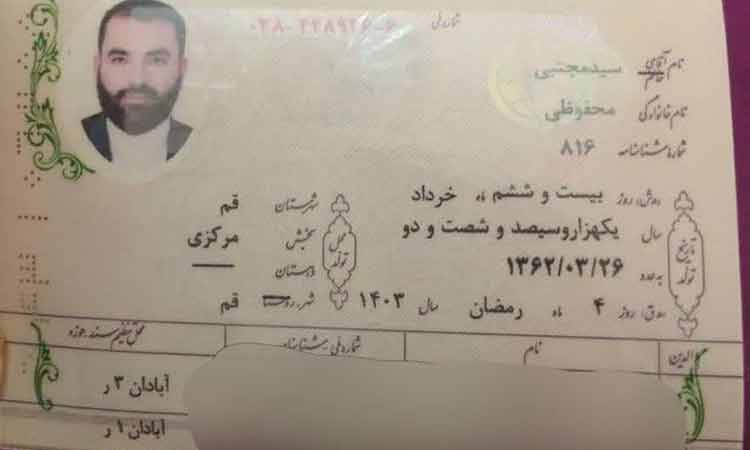 شماره ملی ۰۳۸-۲۲۸۹۲۶-۶
نام آقای خانم سیدمجتبی
نام خانوادگی محفوظی
شماره شناسنامه ۸۱۶
تاریخ تولد
روز بیست و ششم ماه خرداد
سال یکهزاروسیصد و شصت و دو
به عدد ۱۳۶۲/۰۳/۲۶
روز ۴ ماه رمضان سال ۱۴۰۳
محل تولد
شهرستان قم
بخش مرکزی
دهستان —
شهر، روستا قم
والدین نام شماره ملی شناسنامه محل تنظیم سند، حوزه
آبادان ۳ ر
آبادان ۱ ر